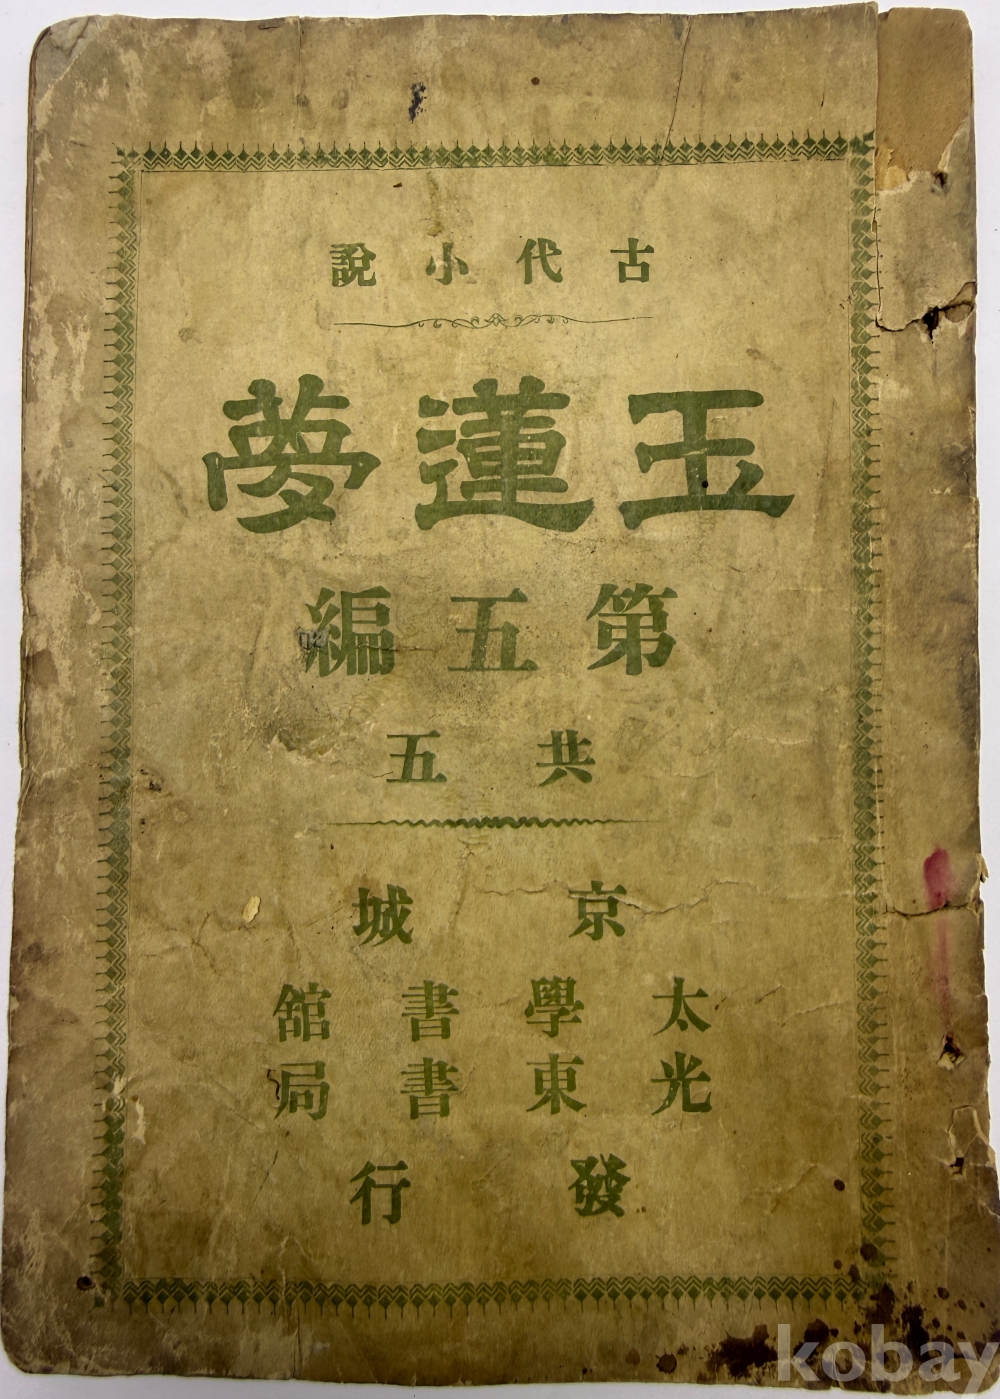 古代小說
玉蓮夢
第五編
共五
京城
太學書館
光東書局
發行
kobay